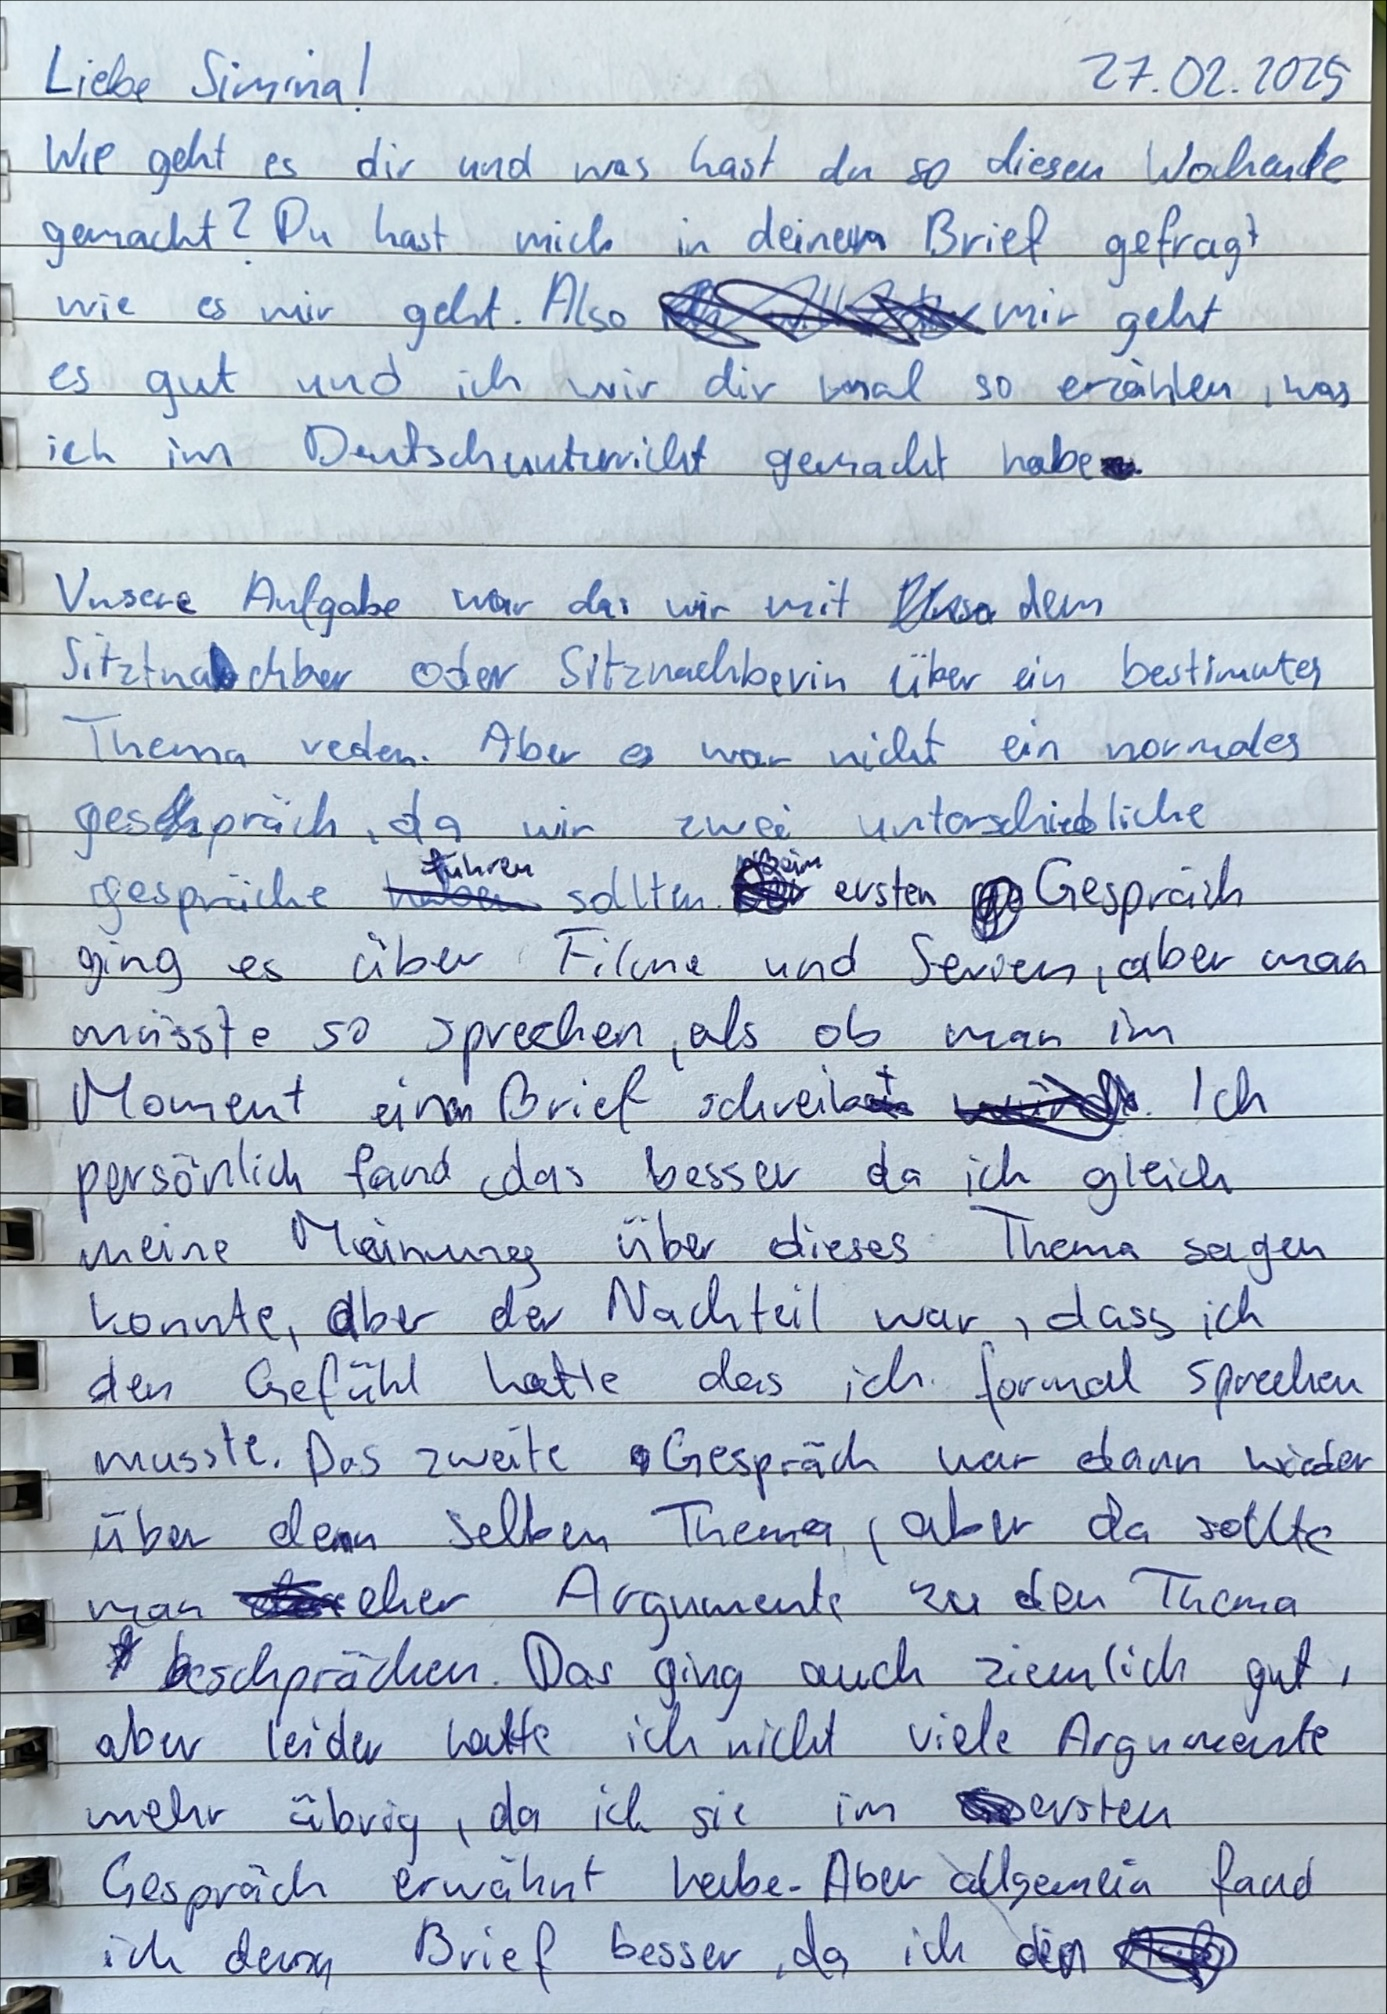 Liebe Simina! 27.02.2025
Wie geht es dir und was hast du so diesen Wochende
gemacht? Du hast mich in deinem Brief gefragt
wie es mir geht. Also mir geht
es gut und ich wir dir mal so erzählen, was
ich im Deutschunterricht gemacht habe
Unsere Aufgabe war das wir mit dem
Sitztnachber oder Sitznachberin über ein bestimmtes
Thema reden. Aber es war nicht ein normales
geschpräch, da wir zwei unterschiedliche
gespräche führen sollten. beim ersten Gespräch
ging es über Filme und Serien, aber man
müsste so sprechen, als ob man im
Moment einen Brief schreibt. Ich
persönlich fand das besser da ich gleich
meine Meinung über dieses Thema sagen
konnte, aber der Nachteil war, dass ich
den Gefühl hatte das ich formal sprechen
musste. Das zweite Gespräch war dann wieder
über den selben Thema, aber da sollte
man eher Argumente zu den Thema
beschprächen. Das ging auch ziemlich gut,
aber leider hatte ich nicht viele Argumente
mehr übrig, da ich sie im ersten
Gespräch erwähnt habe. Aber allgemein fand
ich Brief besser, da ich